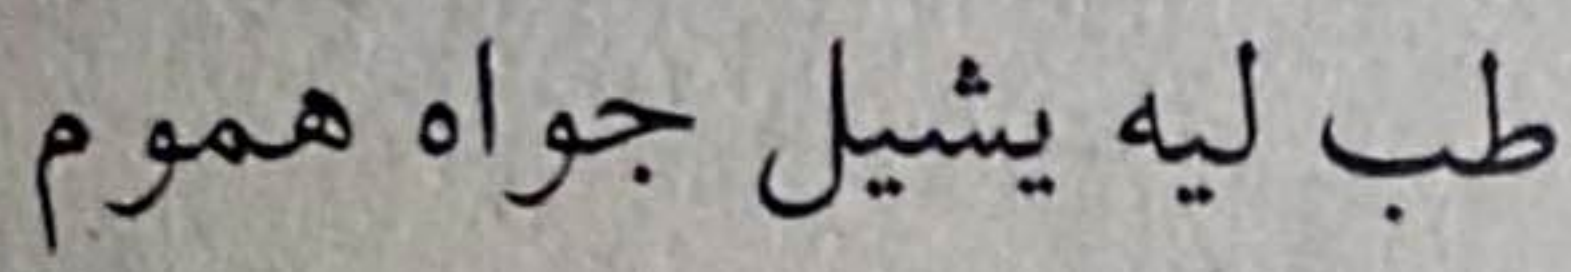 طب ليه يشيل جواه هموم